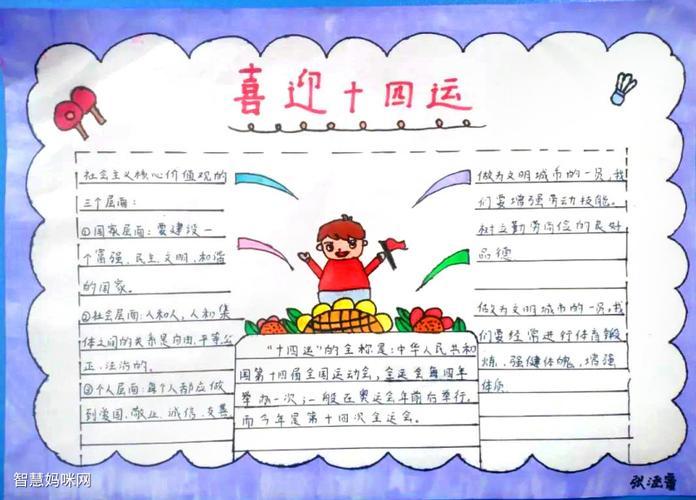 喜迎十四运
社会主义核心价值观的
三个层面:
①国家层面:要建设一
个富强、民主、文明、和谐
的国家。
②社会层面:人和人,人和集
体之间的关系是自由、平等、公
正、法治的。
③个人层面:每个人都应做
到爱国、敬业、诚信、友善
做为文明城市的一员,我
们要增强劳动技能。
树立勤劳简俭的良好
品德
做为文明城市的一员,我
们要经常进行体育锻
炼,强健体魄,增强
体质
"十四运"的全称是:中华人民共和
国第十四届全国运动会,全运会每四年
举办一次,一般在奥运会年前后举行,
而今年是第十四次全运会。
智慧妈咪网